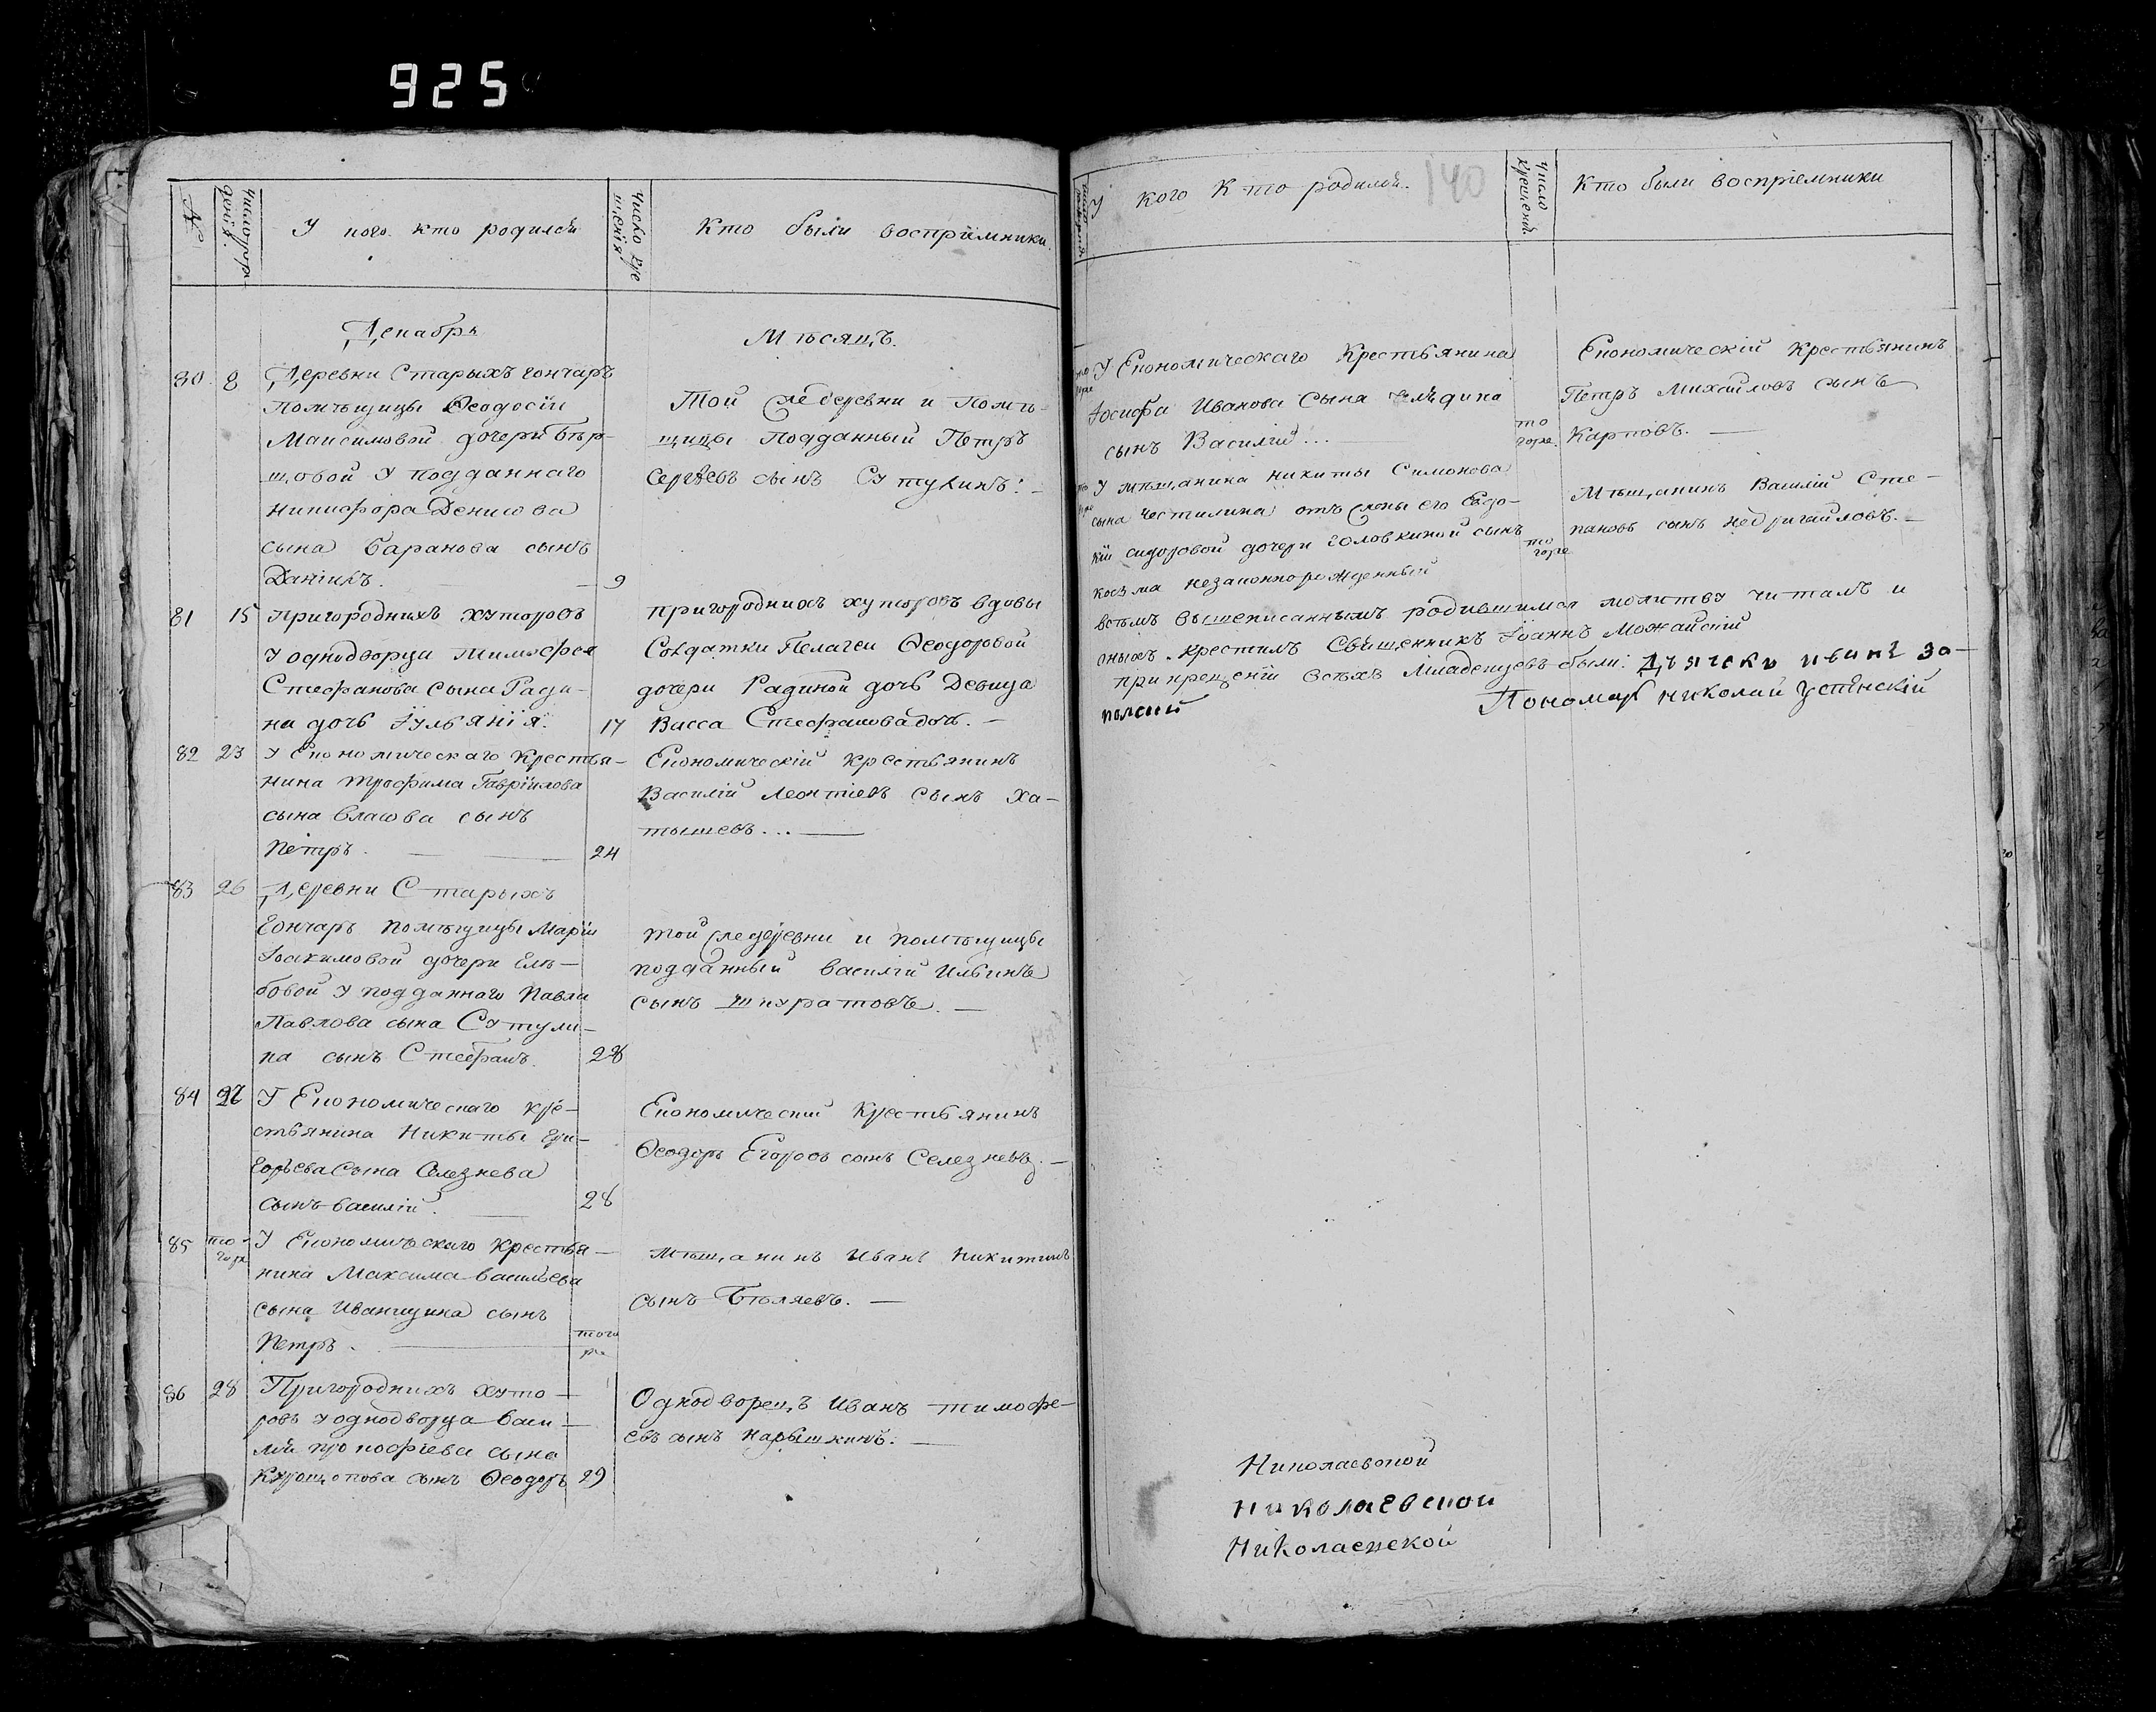 925
№
Число рож
дения.
У кого кто родился
Число кре
щенія
Кто были воспріемники.
Декабрь
Мѣсяцъ.
80. 8 Деревни Старыхъ гончаръ
Помѣщицы Ѳеодосіи
Максимовой дочери
щовой у подданнаго
Никифора Денисова
сына Баранова сынъ
Даніилъ. 9
Той же деревни и помѣ-
щицы подданный Петръ
Сергѣевъ сынъ Сутулинъ. –
81 15 пригородныхъ хуторовъ
у однодворца Тимофея
Стефанова сына Ради-
на дочь Іульянія. 17
пригородныхъ хуторовъ вдовы
Солдатки Пелагеи Ѳеодоровой
дочери Радиной дочь Девица
Васса Стефанова дочь. –
82 23 У Економическаго Крестья-
нина Трофима Гавріилова
сына Власова сынъ
Петръ. 24
Економическій крестьянинъ
Василій Леонтіевъ сынъ Ха-
тышевъ... –
83 26 Деревни Старыхъ
Гончаръ помѣщицы Маріи
Іоакимовой дочери
бовой у подданнаго Павла
Павлова сына Сутули-
на сынъ Стефанъ. 28
той же деревни и помѣщицы
подданный василій Ильинъ
сынъ шкуратовъ. –
84 27 У Економическаго кре-
стьянина Никиты Гри-
горьева Сына Селезнева
сынъ василій. 28
Економическій Крестьянинъ
Ѳеодоръ Егоровъ сынъ Селезневъ. –
85 то-
гоже У Економическаго Крестья-
нина Максима васильева
сына Иванищина сынъ
Петръ. того
же
Мѣщанинъ Иванъ Никитинъ
сынъ Бѣляевъ. –
86 28 Пригородныхъ хуто-
ровъ у однодворца Васи-
лія прокофіева сына
сынъ Ѳеодоръ 29
Однодворецъ Иванъ тимофе-
евъ сынъ Нарышкинъ. –
У кого Кто родился.
140
Число
крещенія.
Кто были воспріемники
то
гоже У Економическаго Крестьянина
Іосифа Иванова Сына
сынъ Василій... то
гоже.
Економическій Крестьянинъ
Петръ Михайловъ сынъ
Карповъ. –
то
гоже У мѣщанина Никиты Симонова
сына Честилина отъ жены его Евдо-
кіи сидоровой дочери головкиной сынъ
косьма незаконнорожденный то
гоже
Мѣщанинъ Василій Сте-
пановъ сынъ Недригайловъ. –
всѣмъ вышеписаннымъ родившимся молитву читалъ и
оныхъ крестилъ Священникъ Іоаннъ Можайскій
при крещеніи всѣхъ Младенцевъ были: Дьячекъ иванъ За-
польскій
Пономарь николай успѣнскій
Николаевской
николаевской
Николаевской